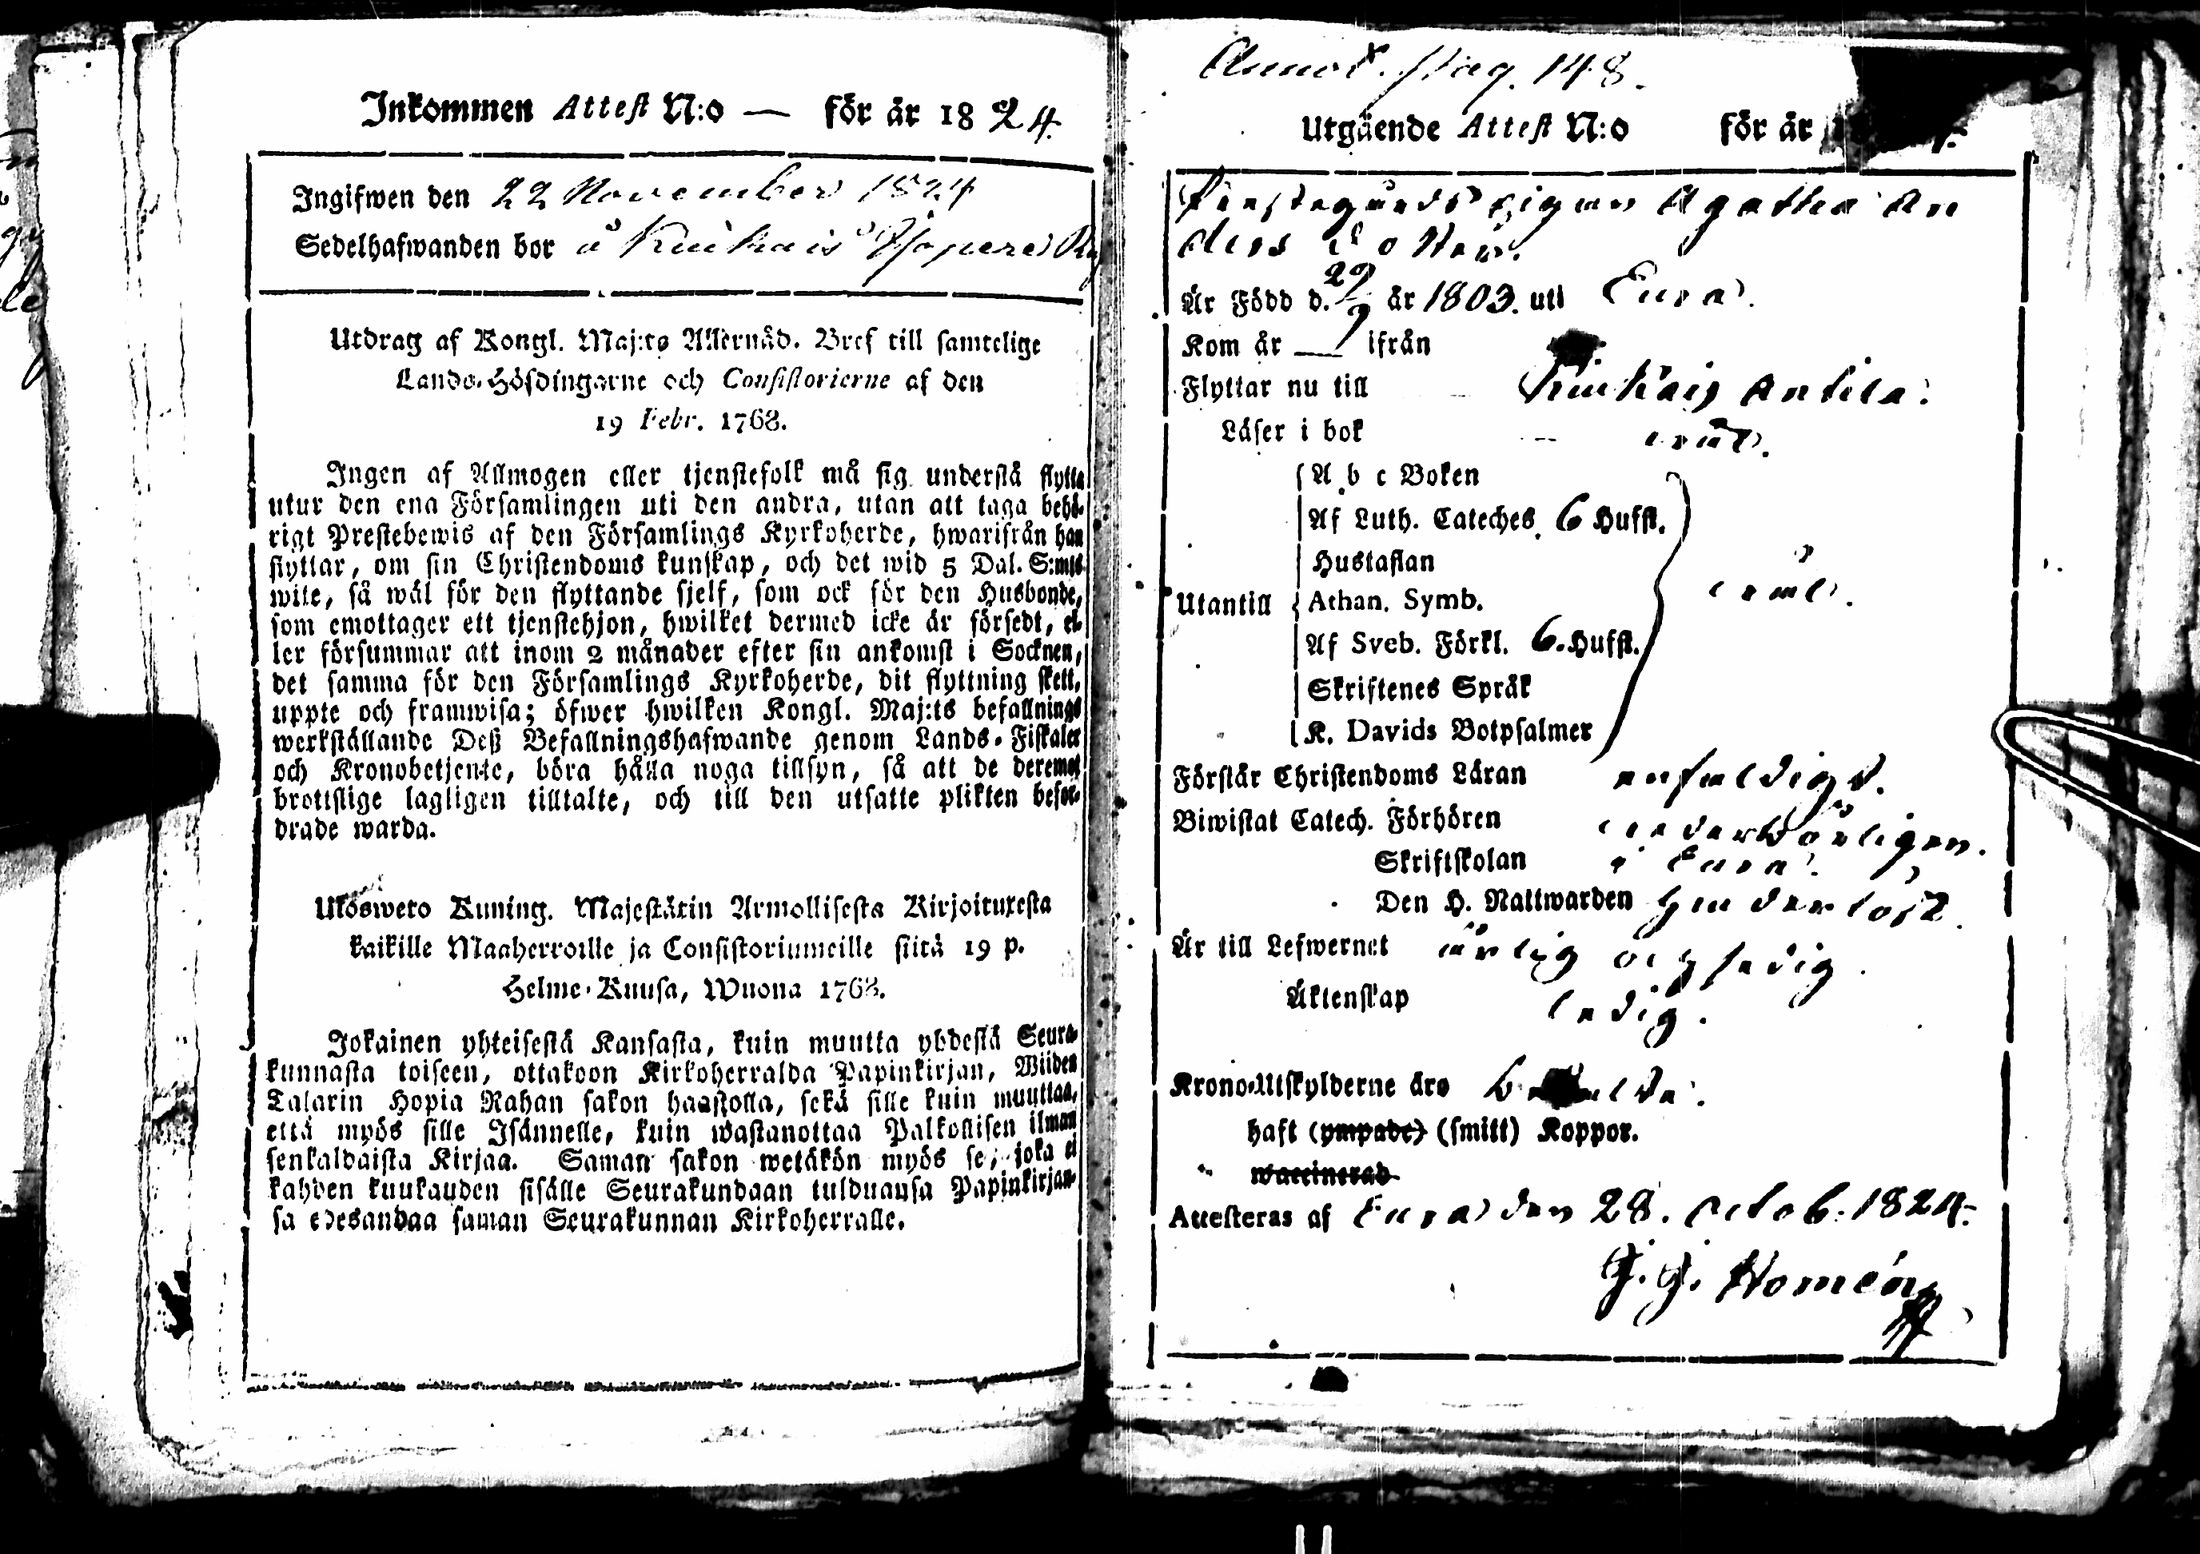 Inkommen Attest N:o — för år 1824.
Ingifwen den 22 November 1824
Sedelhafwanden bor å Kiukais
Utdrag af Kongl. Maj:ts Allernåd. Bref till samtelige
Lands-Höfdingarne och Consistorierne af den
19 Febr. 1768.
Ingen af Allmogen eller tjenstefolk må sig understå flytta
utur den ena Församlingen uti den andra, utan att taga behö-
rigt Prestebewis af den Församlings Kyrkoherde, hwarifrån han
flyttar, om sin Christendoms kunskap, och det wid 5 Dal. S:mts
wite, så wäl för den flyttande sjelf, som ock för den Husbonde,
som emottager ett tjenstehjon, hwilket dermed icke är försedt, el-
ler försummar att inom 2 månader efter sin ankomst i Socknen,
det samma för den Församlings Kyrkoherde, dit flyttning skett,
uppte och framwisa; öfwer hwilken Kongl. Maj:ts befallnings
werkställande Deß Befallningshafwande genom Lands-Fiskaler
och Kronobetjente, böra hålla noga tillsyn, så att de deremot
brottslige lagligen tilltalte, och till den utsatte plikten befor-
drade warda.
Ulosweto Kuning. Majestätin Armollisesta Kirjoituxesta
kaikille Maaherroille ja Consistoriumeille siitä 19 p.
Helme-Kuusa, Wuona 1768.
Jokainen yhteisestä Kansasta, kuin muutta yhdestä Seura-
kunnasta toiseen, ottakoon Kirkoherralda Papinkirjan, Wiiden
Talarin Hopia Rahan sakon haastolla, sekä sille kuin muuttaa,
että myös sille Isännelle, kuin wastanottaa Palkollisen ilman
senkaldaista Kirjaa. Saman sakon wetäkön myös se, joka ei
kahden kuukauden sisälle Seurakundaan tulduansa Papinkirjan-
sa edesandaa saman Seurakunnan Kirkoherralle.
Annot. Pag. 148.
Utgående Attest N:o för år
pigan Agatha An
ders Dotter.
Är Född d. 29/9 år 1803. uti Eura.
Kom år — ifrån
Flyttar nu till Kiukais Antila.
Läser i bok
A b c Boken
Af Luth. Cateches. 6 Hufst.
Hustaflan
Utantill Athan. Symb.
Af Sveb. Förkl. 6. Hufst.
Skriftenes Språk
K. Davids Botpsalmer
Förstår Christendoms Läran enfaldigt.
Biwistat Catech. Förhören wederbörligen.
Skriftskolan i Eura.
Den H. Nattwarden hinderlöst.
Är till Lefwernet ärlig och sedig.
Äktenskap ledig.
Krono-Utskylderne äro betalda.
haft (ympade) (smitt) Koppor.
waccinerad
Attesteras af Eura den 28. Octob. 1824.
G. G. Homén